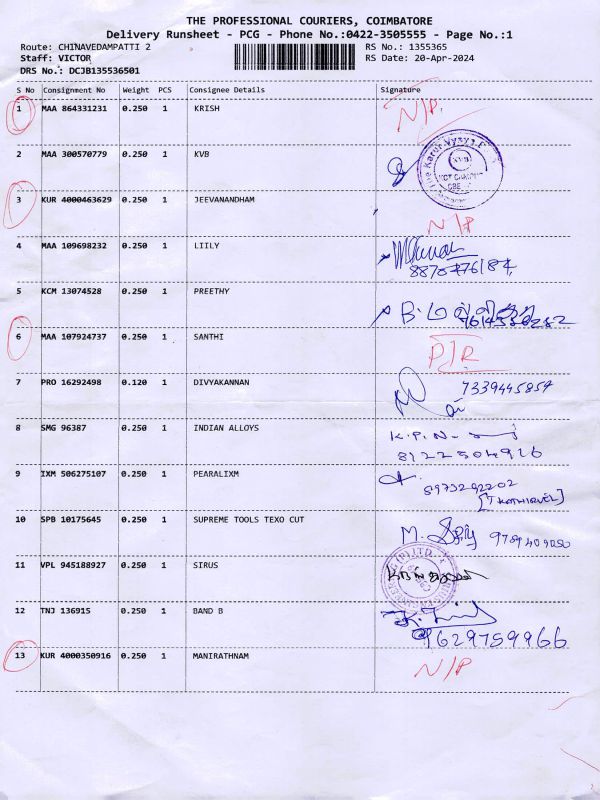 THE PROFESSIONAL COURIERS, COIMBATORE
Delivery Runsheet - PCG - Phone No.:0422-3505555 - Page No.:1
Route: CHINAVEDAMPATTI 2 RS No.: 1355365
Staff: VICTOR RS Date: 20-Apr-2024
DRS No.: DCJB135536501
S No Consignment No Weight PCS Consignee Details Signature
1 MAA 864331231 0.250 1 KRISH N/P.
2 MAA 300570779 0.250 1 KVB
The Karur Vysya B
KVB
CBE
3 KUR 4000463629 0.250 1 JEEVANANDHAM N/P
4 MAA 109698232 0.250 1 LIILY
8870476187
5 KCM 13074528 0.250 1 PREETHY B.
6 MAA 107924737 0.250 1 SANTHI P/R
7 PRO 16292498 0.120 1 DIVYAKANNAN 7339445857
8 SMG 96387 0.250 1 INDIAN ALLOYS K.P.N-
8122504926
9 IXM 506275107 0.250 1 PEARALIXM 8973292202
[T KATHIRVEL]
10 SPB 10175645 0.250 1 SUPREME TOOLS TEXO CUT M.
11 VPL 945188927 0.250 1 SIRUS
(P) LTD.
12 TNJ 136915 0.250 1 BAND B
9629759966
13 KUR 4000350916 0.250 1 MANIRATHNAM N/P